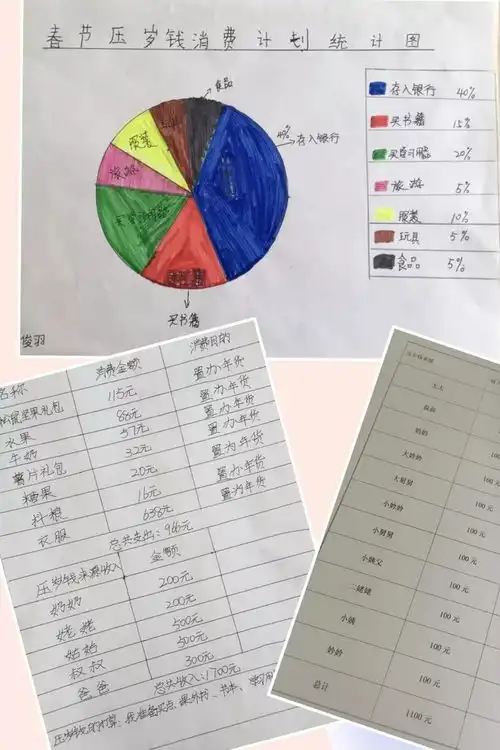 春节压岁钱消费计划统计图
食品
玩具
服装
旅游
买学习用品
买书籍
40%
存入银行
买书籍
存入银行 40%
买书籍 15%
买学习用品 20%
旅游 5%
服装 10%
玩具 5%
食品 5%
俊羽
名称 消费金额 消费目的
坚果礼包 115元 置办年货
水果 88元 置办年货
牛奶 57元 置办年货
薯片礼包 32元 置办年货
糖果 20元 置办年货
16元 置办年货
衣服 638元 置为年货
总共支出:966元
压岁钱来源收入 金额
奶奶 200元
姥姥 200元
姑姑 500元
叔叔 500元
爸爸 300元
总共收入:1700元
压岁钱的打算、我准备买点课外书、书本、学习用
太太 100
100
奶奶 100元
100元
大舅舅 100元
100元
小舅舅 100元
100元
100元
小姨 100元
100元
总计 1100元